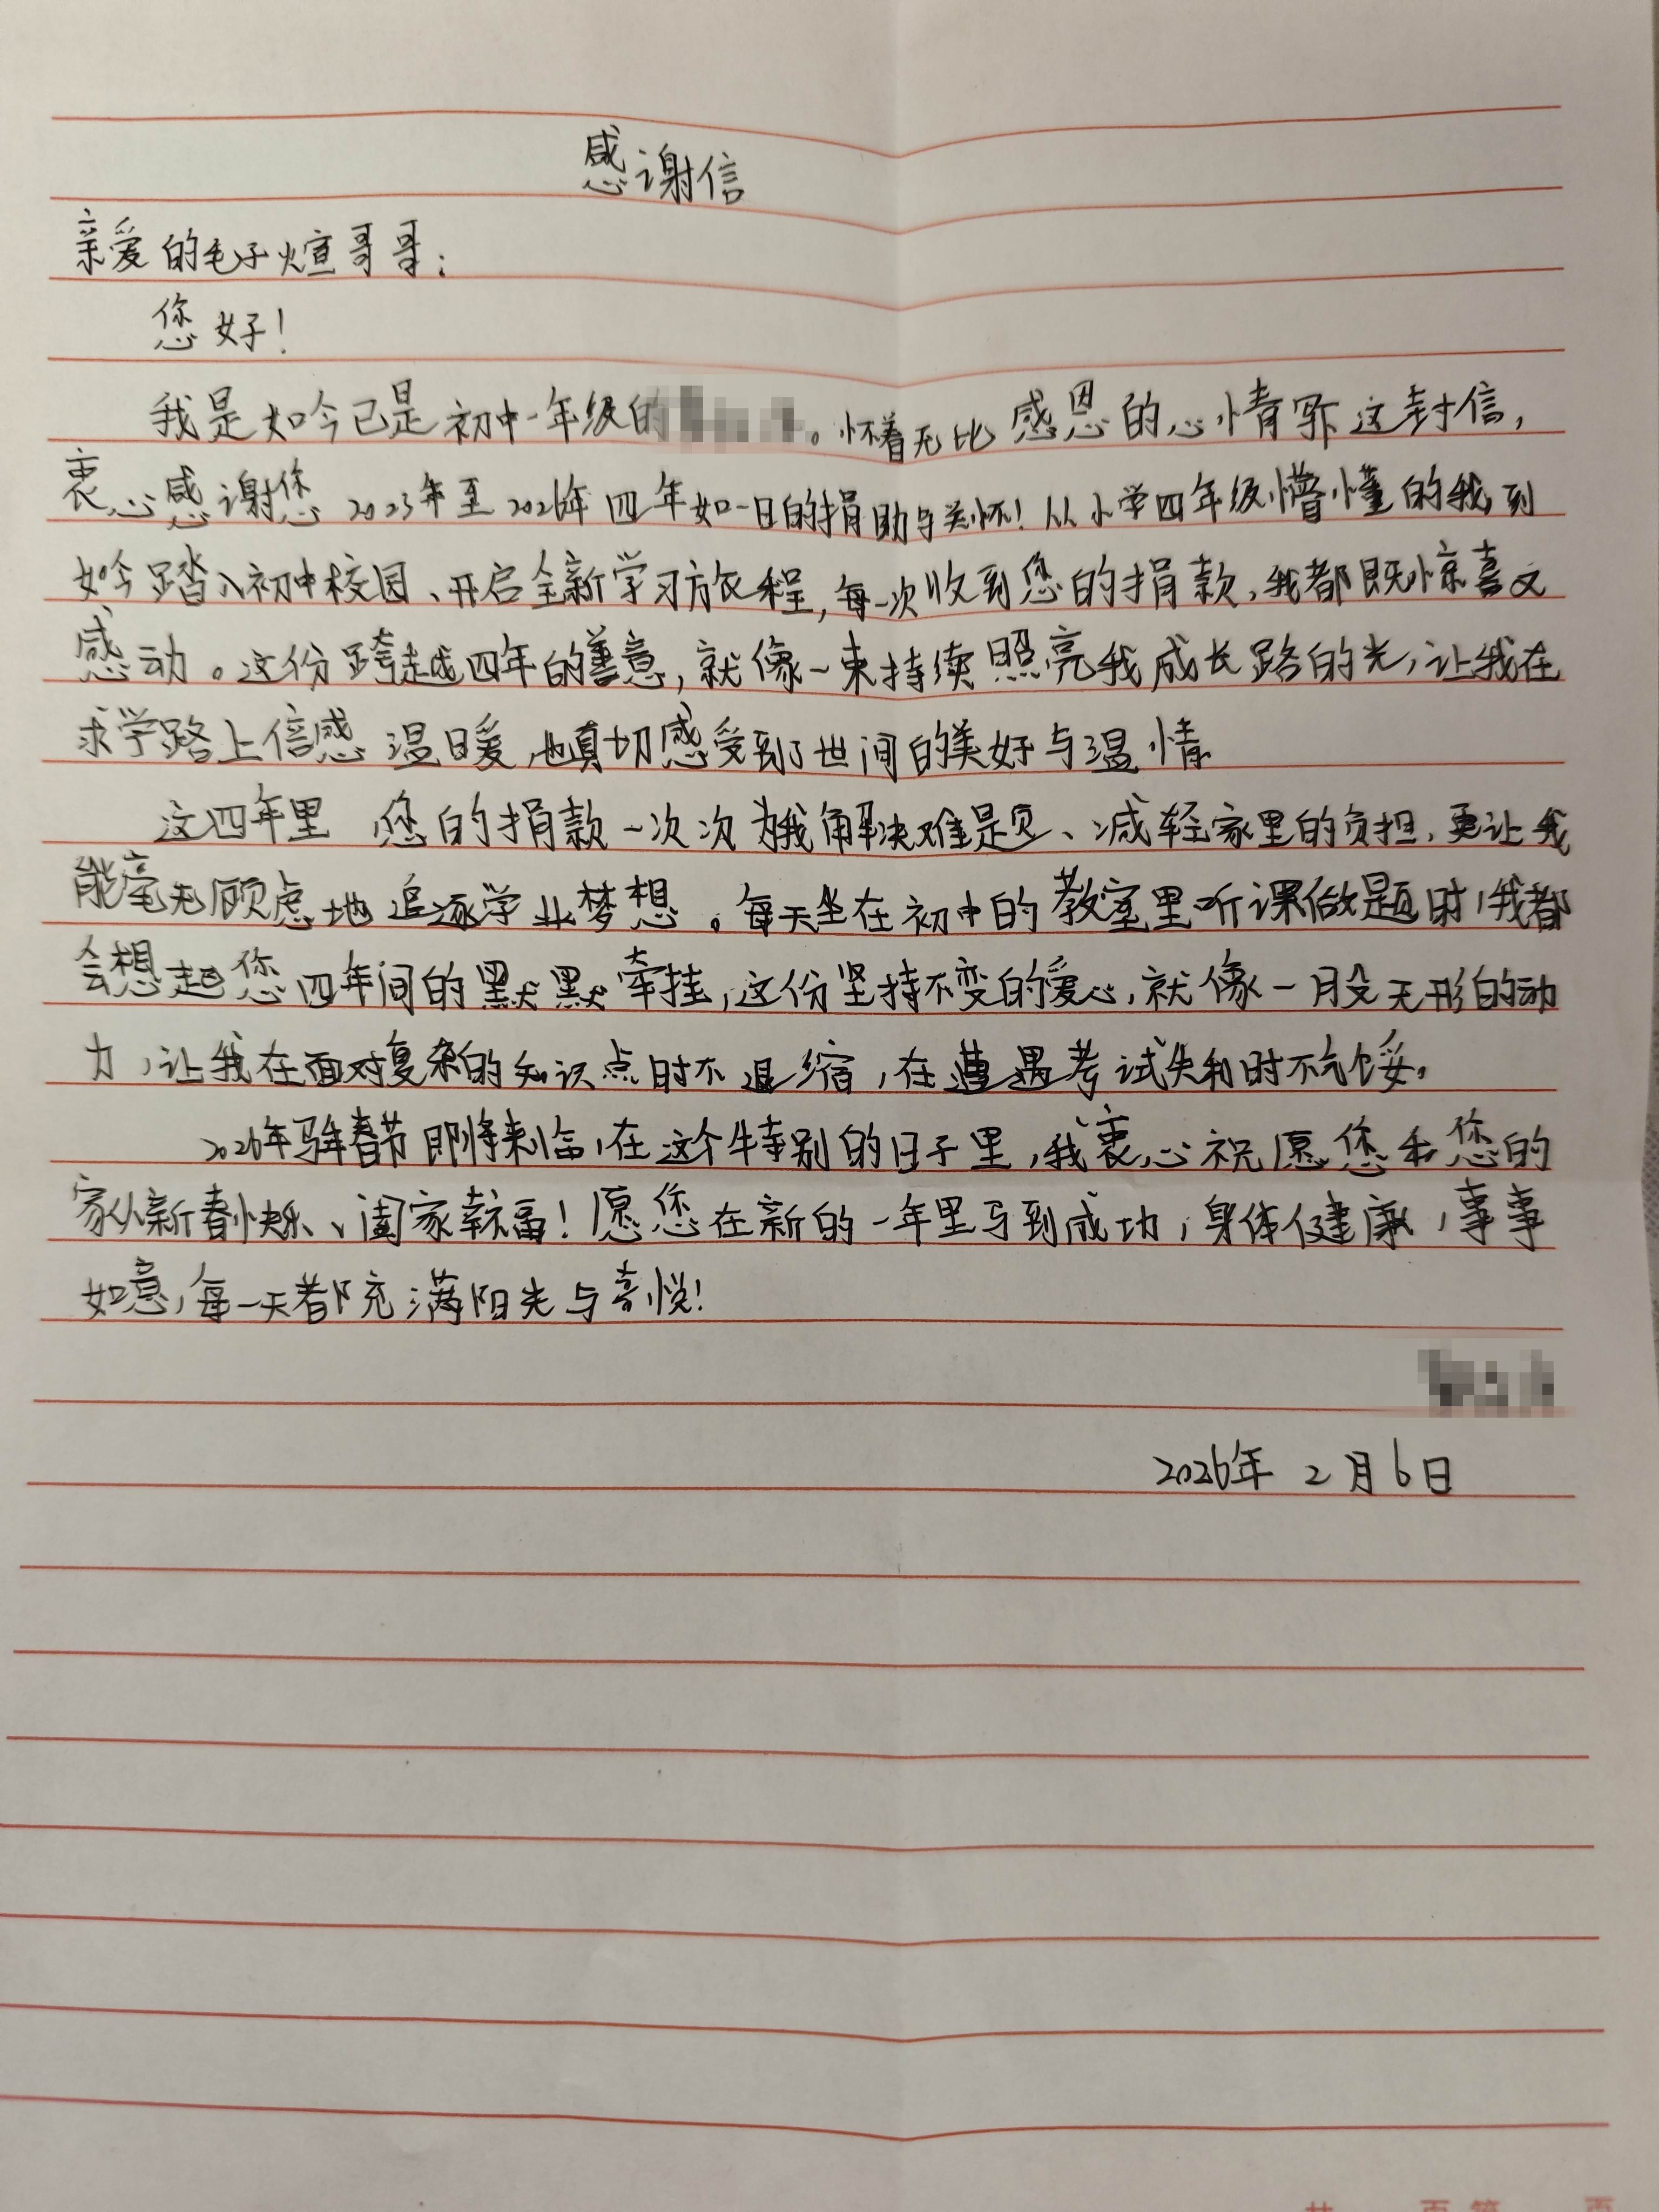 感谢信
亲爱的毛子煊哥哥：
您好！
我是如今已是初中一年级的。怀着无比感恩的心情写这封信，
衷心感谢您2023年至2026年四年如一日的捐助与关怀！从小学四年级懵懂的我，到
如今踏入初中校园、开启全新学习旅程，每一次收到您的捐款，我都既惊喜又
感动。这份跨越四年的善意，就像一束持续照亮我成长路的光，让我在
求学路上倍感温暖，也真切感受到了世间的美好与温情
这四年里，您的捐款一次次为我解决难题、减轻家里的负担，更让我
能毫无顾虑地追逐学业梦想。每天坐在初中的教室里听课做题时，我都
会想起您四年间的默默牵挂，这份坚持不变的爱心，就像一股无形的动
力，让我在面对复杂的知识点时不退缩，在遭遇考试失利时不气馁。
2026年马年春节即将来临，在这个特别的日子里，我衷心祝愿您和您的
家人新春快乐、阖家幸福！愿您在新的一年里马到成功，身体健康，事事
如意，每一天都充满阳光与喜悦！
2026年2月6日
共 页 第 页